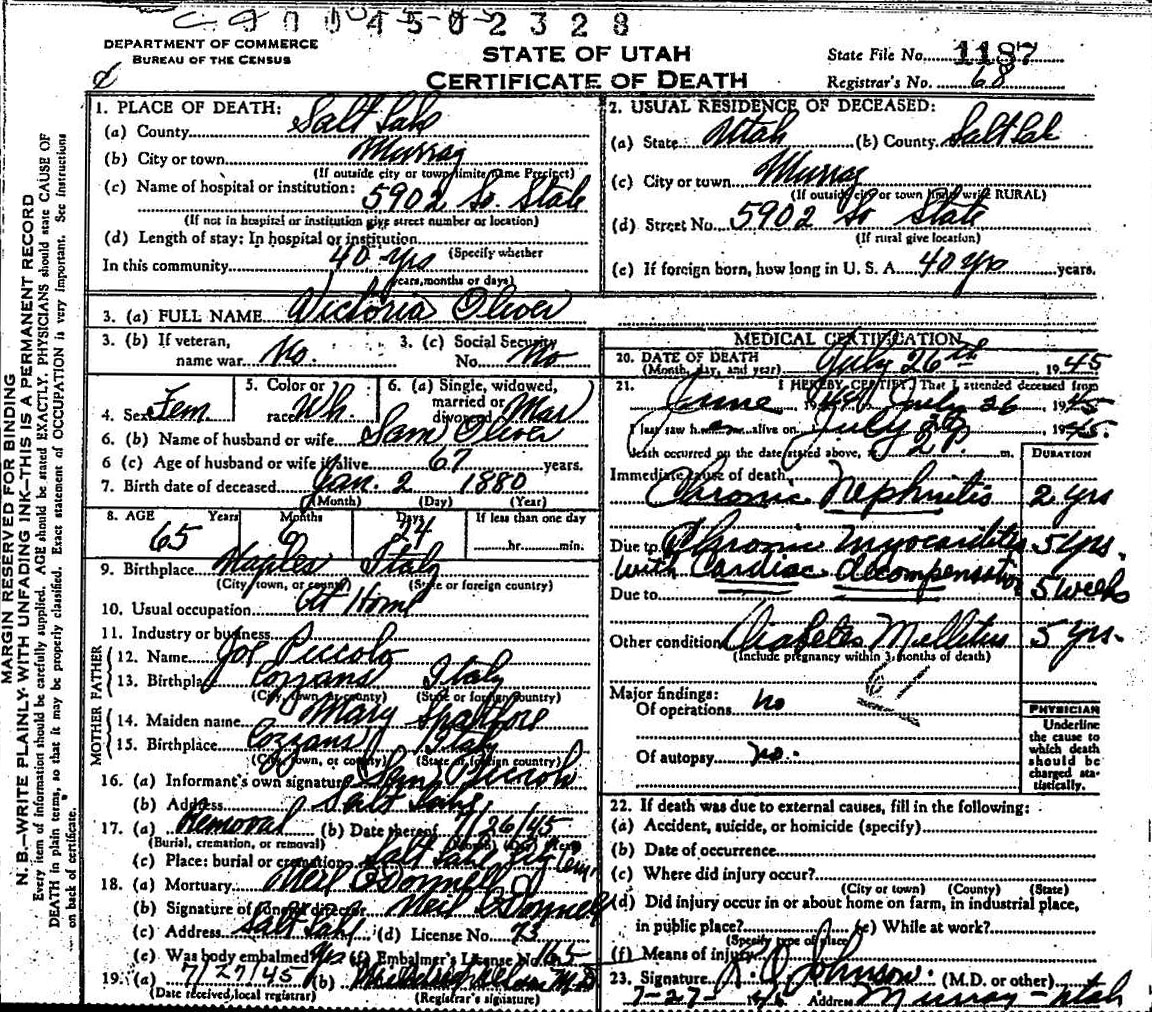 DEPARTMENT OF COMMERCE
BUREAU OF THE CENSUS
STATE OF UTAH
CERTIFICATE OF DEATH
State File No. 1187
Registrar's No. 68
MARGIN RESERVED FOR BINDING
N. B.—WRITE PLAINLY WITH UNFADING INK—THIS IS A PERMANENT RECORD
Every item of information should be carefully supplied. AGE should be stated EXACTLY. PHYSICIANS should state CAUSE OF
DEATH in plain terms, so that it may be properly classified. Exact statement of OCCUPATION is very important. See instructions
on back of certificate.
1. PLACE OF DEATH:
(a) County Salt Lake
(b) City or town Murray
(If outside city or town limits name Precinct)
(c) Name of hospital or institution:
5902 So. State
(If not in hospital or institution give street number or location)
(d) Length of stay: In hospital or institution
(Specify whether
In this community 40 yrs
years, months or days)
2. USUAL RESIDENCE OF DECEASED:
(a) State Utah (b) County Salt Lak
(c) City or town Murray
(If outside city or town limits write RURAL)
(d) Street No. 5902 So State
(If rural give location)
(e) If foreign born, how long in U. S. A. 40 yrs years.
3. (a) FULL NAME Victoria Oliver
3. (b) If veteran,
name war No.
3. (c) Social Security
No. No
4. Sex Fem
5. Color or
race Wh.
6. (a) Single, widowed,
married or
divorced Mar
6. (b) Name of husband or wife Sam Oliver
6 (c) Age of husband or wife if alive 67 years.
7. Birth date of deceased Jan. 2 1880
(Month) (Day) (Year)
8. AGE Years Months Days If less than one day
65 6 24 hr. min.
9. Birthplace Naples Italy
(City, town, or county) (State or foreign country)
10. Usual occupation At Home
11. Industry or business
FATHER
12. Name Joe Piccolo
13. Birthplace Italy
(City, town or county) (State or foreign country)
MOTHER
14. Maiden name Mary
15. Birthplace Italy
(City, town, or county) (State or foreign country)
16. (a) Informant's own signature Piccolo
(b) Address Salt Lake
17. (a) Removal (b) Date thereof 7/26/45
(Burial, cremation, or removal) (Month) (Day) (Year)
(c) Place: burial or cremation Salt Lake City Cem.
18. (a) Mortuary Neil O'Donnell
(b) Signature of funeral director Neil O'Donnell
(c) Address Salt Lake (d) License No. 73
(e) Was body embalmed Yes (f) Embalmer's License No. 165
19. (a) 7/27/45 (b)
(Date received local registrar) (Registrar's signature)
MEDICAL CERTIFICATION
20. DATE OF DEATH July 26th 1945
(Month, day, and year)
21. I HEREBY CERTIFY, That I attended deceased from
June July 26 1945
I last saw h alive on July 1945.
death occurred on the date stated above, m.
DURATION
Immediate cause of death
Chronic Nephritis 2 yrs
Due to Chronic Myocarditis 5 yrs.
with Cardiac decompensation
Due to 5 weeks
Other condition Diabetes Mellitus 5 yrs.
(Include pregnancy within 3 months of death)
Major findings:
Of operations no
Of autopsy no.
PHYSICIAN
Underline
the cause to
which death
should be
charged sta-
tistically.
22. If death was due to external causes, fill in the following:
(a) Accident, suicide, or homicide (specify)
(b) Date of occurrence
(c) Where did injury occur?
(City or town) (County) (State)
(d) Did injury occur in or about home on farm, in industrial place,
in public place? (e) While at work?
(Specify type of place)
(f) Means of injury
23. Signature Johnson. (M.D. or other)
7-27-45 Address Murray - Utah